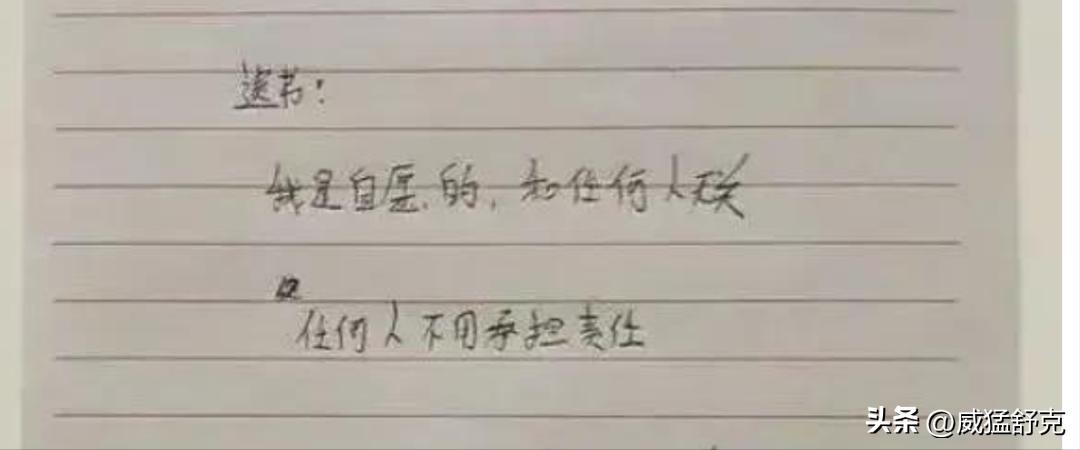 遗书：
我是自愿的，和任何人无关
任何人不用承担责任
头条 @威猛舒克